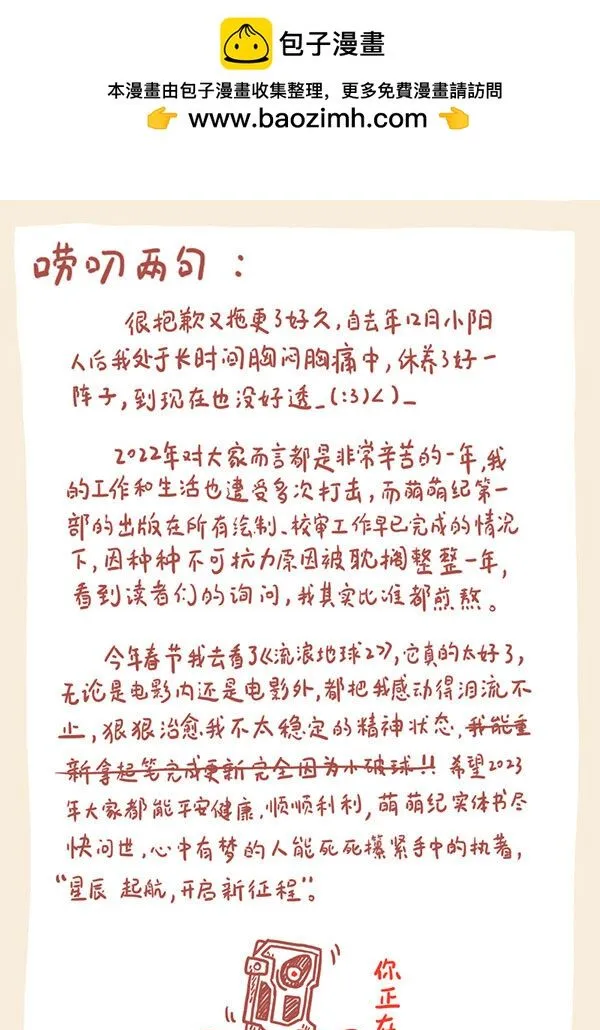 包子漫畫
本漫畫由包子漫畫收集整理，更多免費漫畫請訪問
👉 www.baozimh.com 👈
唠叨两句：
很抱歉又拖更了好久，自去年12月小阳
人后我处于长时间胸闷胸痛中，休养了好一
阵子，到现在也没好透_(:3)∠)_
2022年对大家而言都是非常辛苦的一年，我
的工作和生活也遭受多次打击，而萌萌纪第一
部的出版在所有绘制、校审工作早已完成的情况
下，因种种不可抗力原因被耽搁整整一年，
看到读者们的询问，我其实比谁都煎熬。
今年春节我去看了《流浪地球2》，它真的太好了，
无论是电影内还是电影外，都把我感动得泪流不
止，狠狠治愈我不太稳定的精神状态，我能重
新拿起笔完成更新完全因为小破球！！希望2023
年大家都能平安健康，顺顺利利，萌萌纪实体书尽
快问世，心中有梦的人能死死攥紧手中的执著，
“星辰 起航，开启新征程”。
你正在